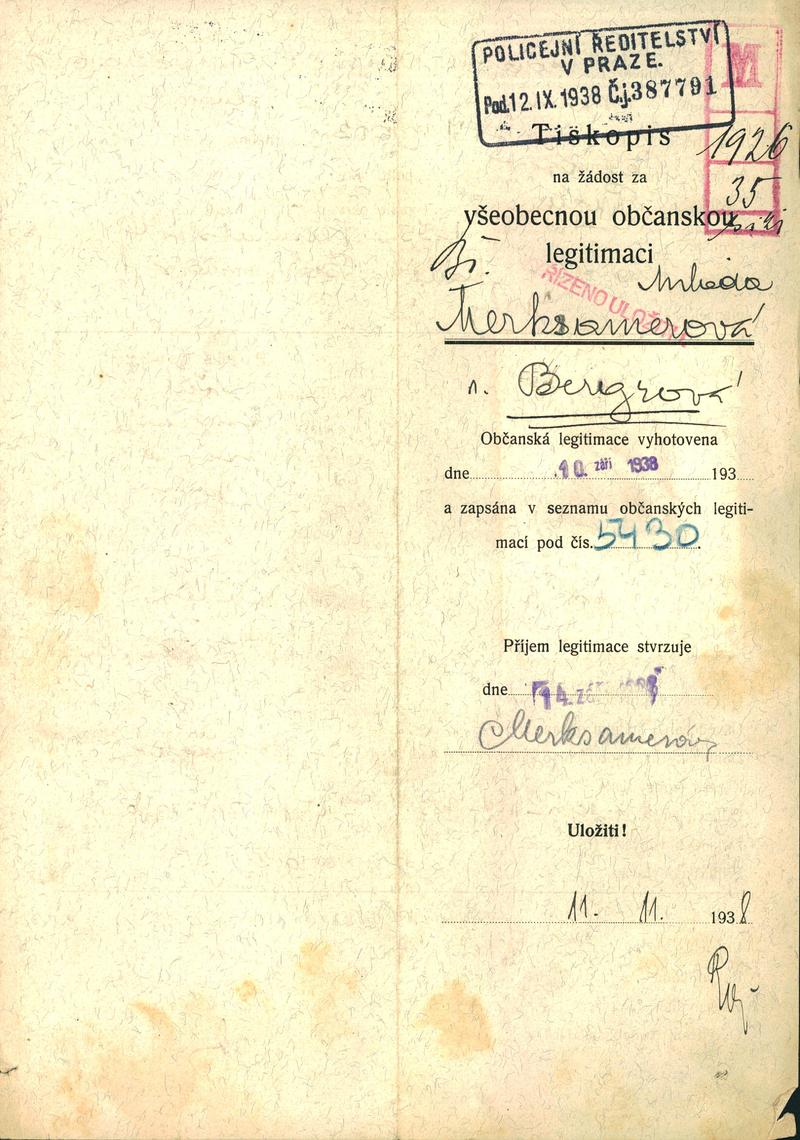 POLICEJNÍ ŘEDITELSTVÍ
V PRAZE.
Pod. 12. IX. 1938 Č.j. 387791
M
Tiskopis
1926
35
na žádost za
všeobecnou občanskou
legitimaci
ŘÍZENO ULOŽ
Merksamerová
r. Bergrová
Občanská legitimace vyhotovena
dne 10. září 1938 193
a zapsána v seznamu občanských legiti-
mací pod čís. 5430.
Příjem legitimace stvrzuje
dne 14. září 1938
Merksamerová
Uložiti!
11. 11. 1938